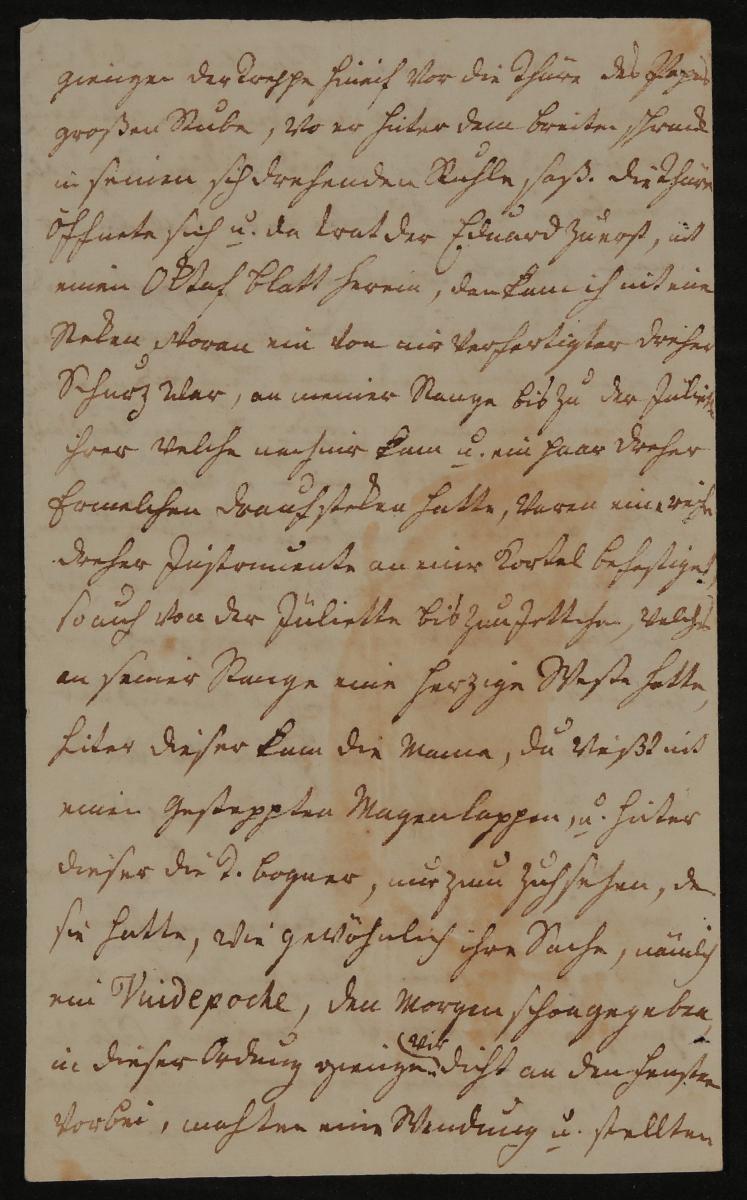 giengen der Treppe hinauf vor die Thüre des Papas
großen Stube, wo er hinter dem breiten
in seinen sich drehenden Stuhle saß. die Thüre
öffnete sich u. da trat der Eduard zuerst, mit
einen Oktaf blatt herein, dan kam ich mit eine
Steken woran ein von mir verfertigter dreher
Schurz war, an meiner Stange bis zu der Juliette
ihrer welche nach mir kam u. ein paar dreher
Ermelchen drauf steken hatte, waren eine reihe
dreher Instrumente an einer Kortel befestiget,
so auch von der Jüliette bis zum Jettchen, welches
an seiner Stange eine herzige Weste hatte,
hinter dieser kam die Mama, du weißt mit
einen gesteppten Magenlappen, u. hinter
dieser die T. bogner, nur zum zuhsehen, den
sie hatte, wie gewöhnlich ihre Sache, nämlich
ein Vuidepoche, den Morgen schon gegeben,
in dieser Ordnung giengen wir dicht an den fenster
vorbei, machten eine Wendung u. stellten